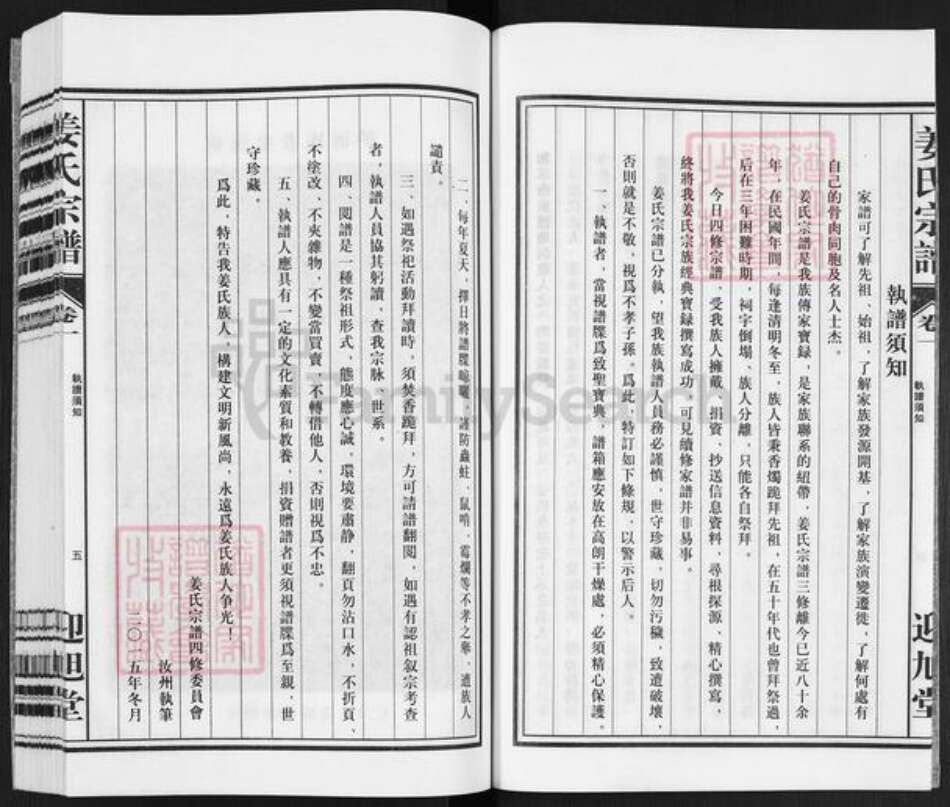 執譜須知
家譜可了解先祖、始祖，了解家族發源開基，了解家族演變遷徙，了解何處有
自己的骨肉同胞及名人士杰。
姜氏宗譜是我族傳家寶録，是家族聯系的紐帶，姜氏宗譜三修離今已近八十余
年，在民國年間，每逢清明冬至，族人皆秉香燭跪拜先祖，在五十年代也曾拜祭過，
后在三年困難時期，祠宇倒塌、族人分離，只能各自祭拜。
今日四修宗譜，受我族人擁戴、捐資、抄送信息資料、尋根探源、精心撰寫，
終將我姜氏宗族經典寶録撰寫成功，可見續修家譜并非易事。
姜氏宗譜已分執，望我族執譜人員務必謹慎，世守珍藏，切勿污穢，致遭破壞，
否則就是不敬，視爲不孝子孫。爲此，特訂如下條規，以警示后人。
一、執譜者，當視譜牒爲致聖寶典，譜箱應安放在高朗干燥處，必須精心保護。
二、每年夏天，擇日將譜牒晾曬，謹防蟲蛀、鼠啃、霉爛等不孝之舉，遭族人
譴責。
三、如遇祭祀活動拜讀時，須焚香跪拜，方可請譜翻閱，如遇有認祖叙宗考查
者，執譜人員協其躬讀、查我宗脉、世系。
四、閱譜是一種祭祖形式，態度應心誠，環境要肅静，翻頁勿沾口水，不折頁、
不塗改、不夾雜物，不變當買賣，不轉借他人，否則視爲不忠。
五、執譜人應具有一定的文化素質和教養，捐資贈譜者更須祝譜牒爲至親，世
守珍藏。
爲此，特告我姜氏族人，構建文明新風尚，永遠爲姜氏族人争光！
姜氏宗譜四修委員會
汝州執筆
二〇一五年冬月
姜氏宗譜
卷一
執譜須知
迎旭堂
姜氏宗譜
卷一
執譜須知
五
迎旭堂
FamilySearch